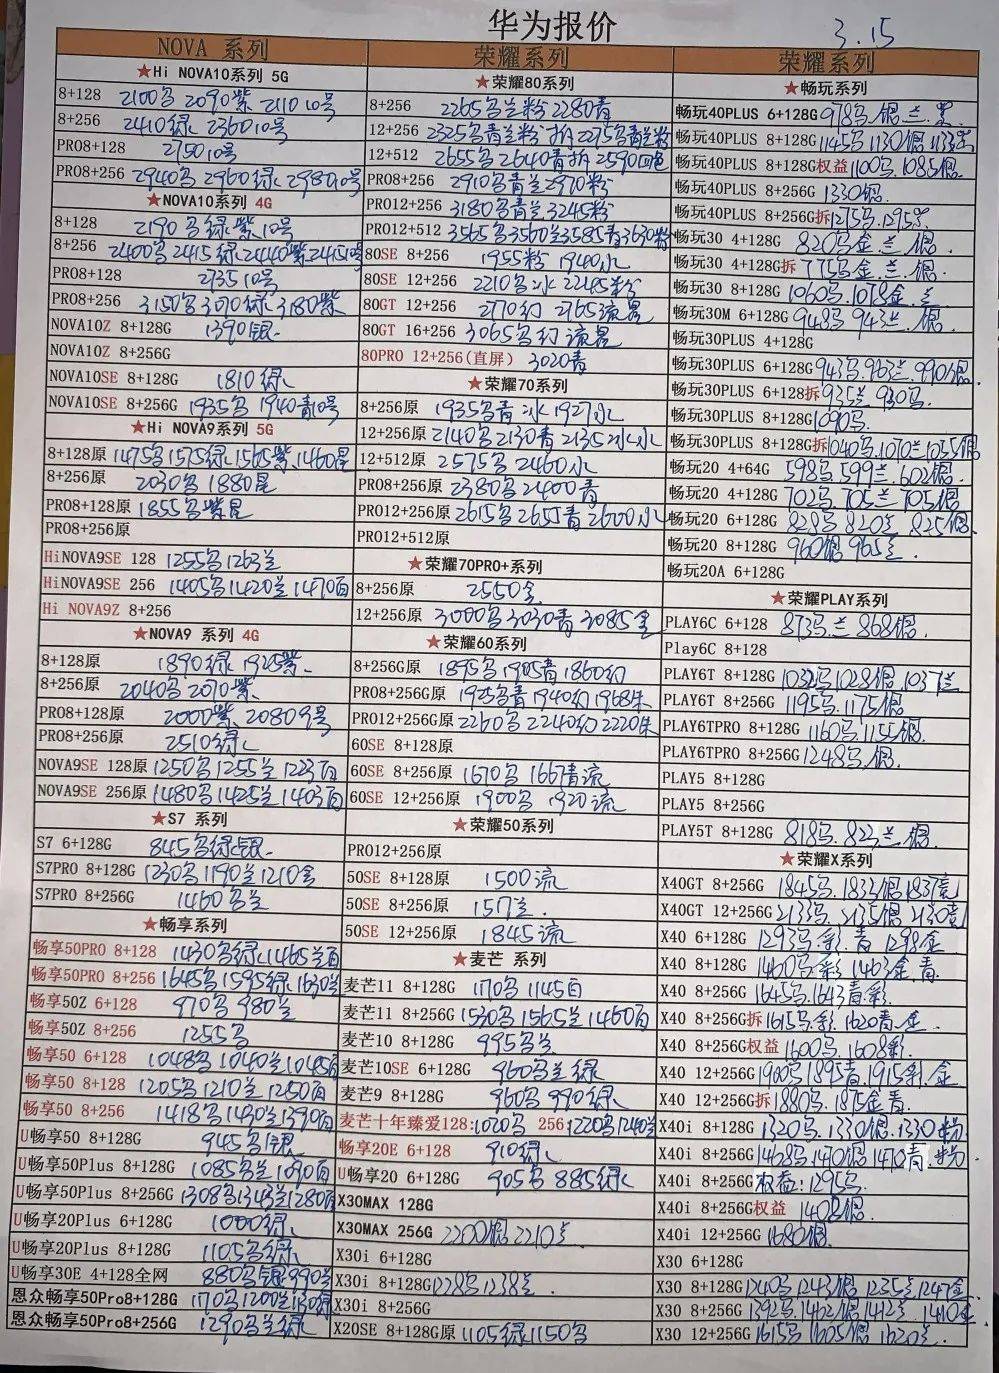 华为报价
3.15
NOVA 系列
★Hi NOVA10系列 5G
8+128 2100 2090紫 2110 10号
8+256 2410绿 2360 10号
PRO8+128 2750 10号
PRO8+256 2940 2960绿 2980 10号
★NOVA10系列 4G
8+128 2190 绿紫 10号
8+256 2400 2415绿 2440紫 2415 10号
PRO8+128 2735 10号
PRO8+256 3150 3070绿 3180紫
NOVA10Z 8+128G 1390银
NOVA10Z 8+256G
NOVA10SE 8+128G 1810绿
NOVA10SE 8+256G 1935 1940青10号
★Hi NOVA9系列 5G
8+128原 1475 1575绿 1565紫 1460
8+256原 2030 1880
PRO8+128原 1855 紫
PRO8+256原
HiNOVA9SE 128 1255 1263兰
HiNOVA9SE 256 1405 1420兰 1470百
Hi NOVA9Z 8+256
★NOVA9 系列 4G
8+128原 1890绿 1925紫
8+256原 2040 2070紫
PRO8+128原 2000紫 2080 9号
PRO8+256原 2510绿
NOVA9SE 128原 1250 1255兰 1223百
NOVA9SE 256原 1480 1425兰 1403百
★S7 系列
S7 6+128G 845 绿银
S7PRO 8+128G 1230 1190兰 1210金
S7PRO 8+256G 1460 兰
★畅享系列
畅享50PRO 8+128 1430 绿 1465兰百
畅享50PRO 8+256 1645 1595绿 1630兰
畅享50Z 6+128 970 980兰
畅享50Z 8+256 1255
畅享50 6+128 1048 1040兰 1045百
畅享50 8+128 1205 1210兰 1250百
畅享50 8+256 1418 1430兰 1390百
U畅享50 8+128G 945 银
U畅享50Plus 8+128G 1085 兰 1090百
U畅享50Plus 8+256G 1308 1343兰 1280百
U畅享20Plus 6+128G 1000绿
U畅享20Plus 8+128G 1105 绿
U畅享30E 4+128全网 880 银 990兰
恩众畅享50Pro8+128G 1170 1200兰 1130绿
恩众畅享50Pro8+256G 1290 兰绿
荣耀系列
★荣耀80系列
8+256 2265 兰粉 2280青
12+256 2325 青兰粉 拆2275 青兰粉
12+512 2655 2640青 拆2590四色
PRO8+256 2910 青兰 2970粉
PRO12+256 3180 青兰 3245粉
PRO12+512 3565 3560兰 3585青 3630粉
80SE 8+256 1955粉 1940水
80SE 12+256 2210 水 2245粉
80GT 12+256 2770幻 2765流星
80GT 16+256 3065 幻 流星
80PRO 12+256(直屏) 3020青
★荣耀70系列
8+256原 1935 青 冰 1927水
12+256原 2140 2130青 2135 冰水
12+512原 2575 2460水
PRO8+256原 2380 2400青
PRO12+256原 2615 2655青 2600水
PRO12+512原
★荣耀70PRO+系列
8+256原 2550金
12+256原 3000 3030青 3085金
★荣耀60系列
8+256G原 1895 1905青 1860幻
PRO8+256G原 1925 青 1940幻 1968朱
PRO12+256G原 2260 2240幻 2220朱
60SE 8+128原
60SE 8+256原 1670 1667青流
60SE 12+256原 1900 1920流
★荣耀50系列
PRO12+256原
50SE 8+128原 1500流
50SE 8+256原 1517兰
50SE 12+256原 1845流
★麦芒 系列
麦芒11 8+128G 1170 1145百
麦芒11 8+256G 1530 1565兰 1460百
麦芒10 8+128G 995 兰
麦芒10SE 6+128G 960 兰绿
麦芒9 8+128G 960 990绿
麦芒十年臻爱128:1020 256:1220 1240兰
畅享20E 6+128 910绿
U畅享20 6+128G 905 885绿
X30MAX 128G
X30MAX 256G 2200银 2210兰
X30i 6+128G
X30i 8+128G 1228 1238兰
X30i 8+256G
X20SE 8+128G原 1105绿 1150
荣耀系列
★畅玩系列
畅玩40PLUS 6+128G 978 银 兰
畅玩40PLUS 8+128G 1145 1130银 1133兰
畅玩40PLUS 8+128G权益 1100 1085银
畅玩40PLUS 8+256G 1330银
畅玩40PLUS 8+256G拆 1275 1295
畅玩30 4+128G 820 金 兰 银
畅玩30 4+128G拆 775 金 兰 银
畅玩30 8+128G 1060 1078金 兰
畅玩30M 6+128G 948 943兰 银
畅玩30PLUS 4+128G
畅玩30PLUS 6+128G 943 963兰 990银
畅玩30PLUS 6+128拆 935兰 930
畅玩30PLUS 8+128G 1090
畅玩30PLUS 8+128G拆 1040 1070兰 1055银
畅玩20 4+64G 598 599兰 602银
畅玩20 4+128G 702 705兰 705银
畅玩20 6+128G 828 820兰 825银
畅玩20 8+128G 960银 965兰
畅玩20A 6+128G
★荣耀PLAY系列
PLAY6C 6+128G 873 兰 868银
Play6C 8+128
PLAY6T 8+128G 1032 1028银 1037兰
PLAY6T 8+256G 1195 1175银
PLAY6TPRO 8+128G 1160 1155银
PLAY6TPRO 8+256G 1248 银
PLAY5 8+128G
PLAY5 8+256G
PLAY5T 8+128G 818 823兰 银
★荣耀X系列
X40GT 8+256G 1845 1832银 1837竞
X40GT 12+256G 2133 2135银 2130竞
X40 6+128G 1293 彩 青 1298金
X40 8+128G 1460 彩 1463金 青
X40 8+256G 1645 1643青 彩
X40 8+256G拆 1615 彩 1620青 金
X40 8+256G权益 1600 1608彩
X40 12+256G 1900 1895青 1915彩 金
X40 12+256G拆 1880 1875金 青
X40i 8+128G 1320 1330银 1330粉
X40i 8+256G 1468 1470银 1478青 粉
X40i 8+256G 权益:1295
X40i 8+256G权益 1408银
X40i 12+256G 1680银
X30 6+128G
X30 8+128G 1240 1243银 1235兰 1247金
X30 8+256G 1392 1402银 1412兰 1410金
X30 12+256G 1615 1605银 1620兰